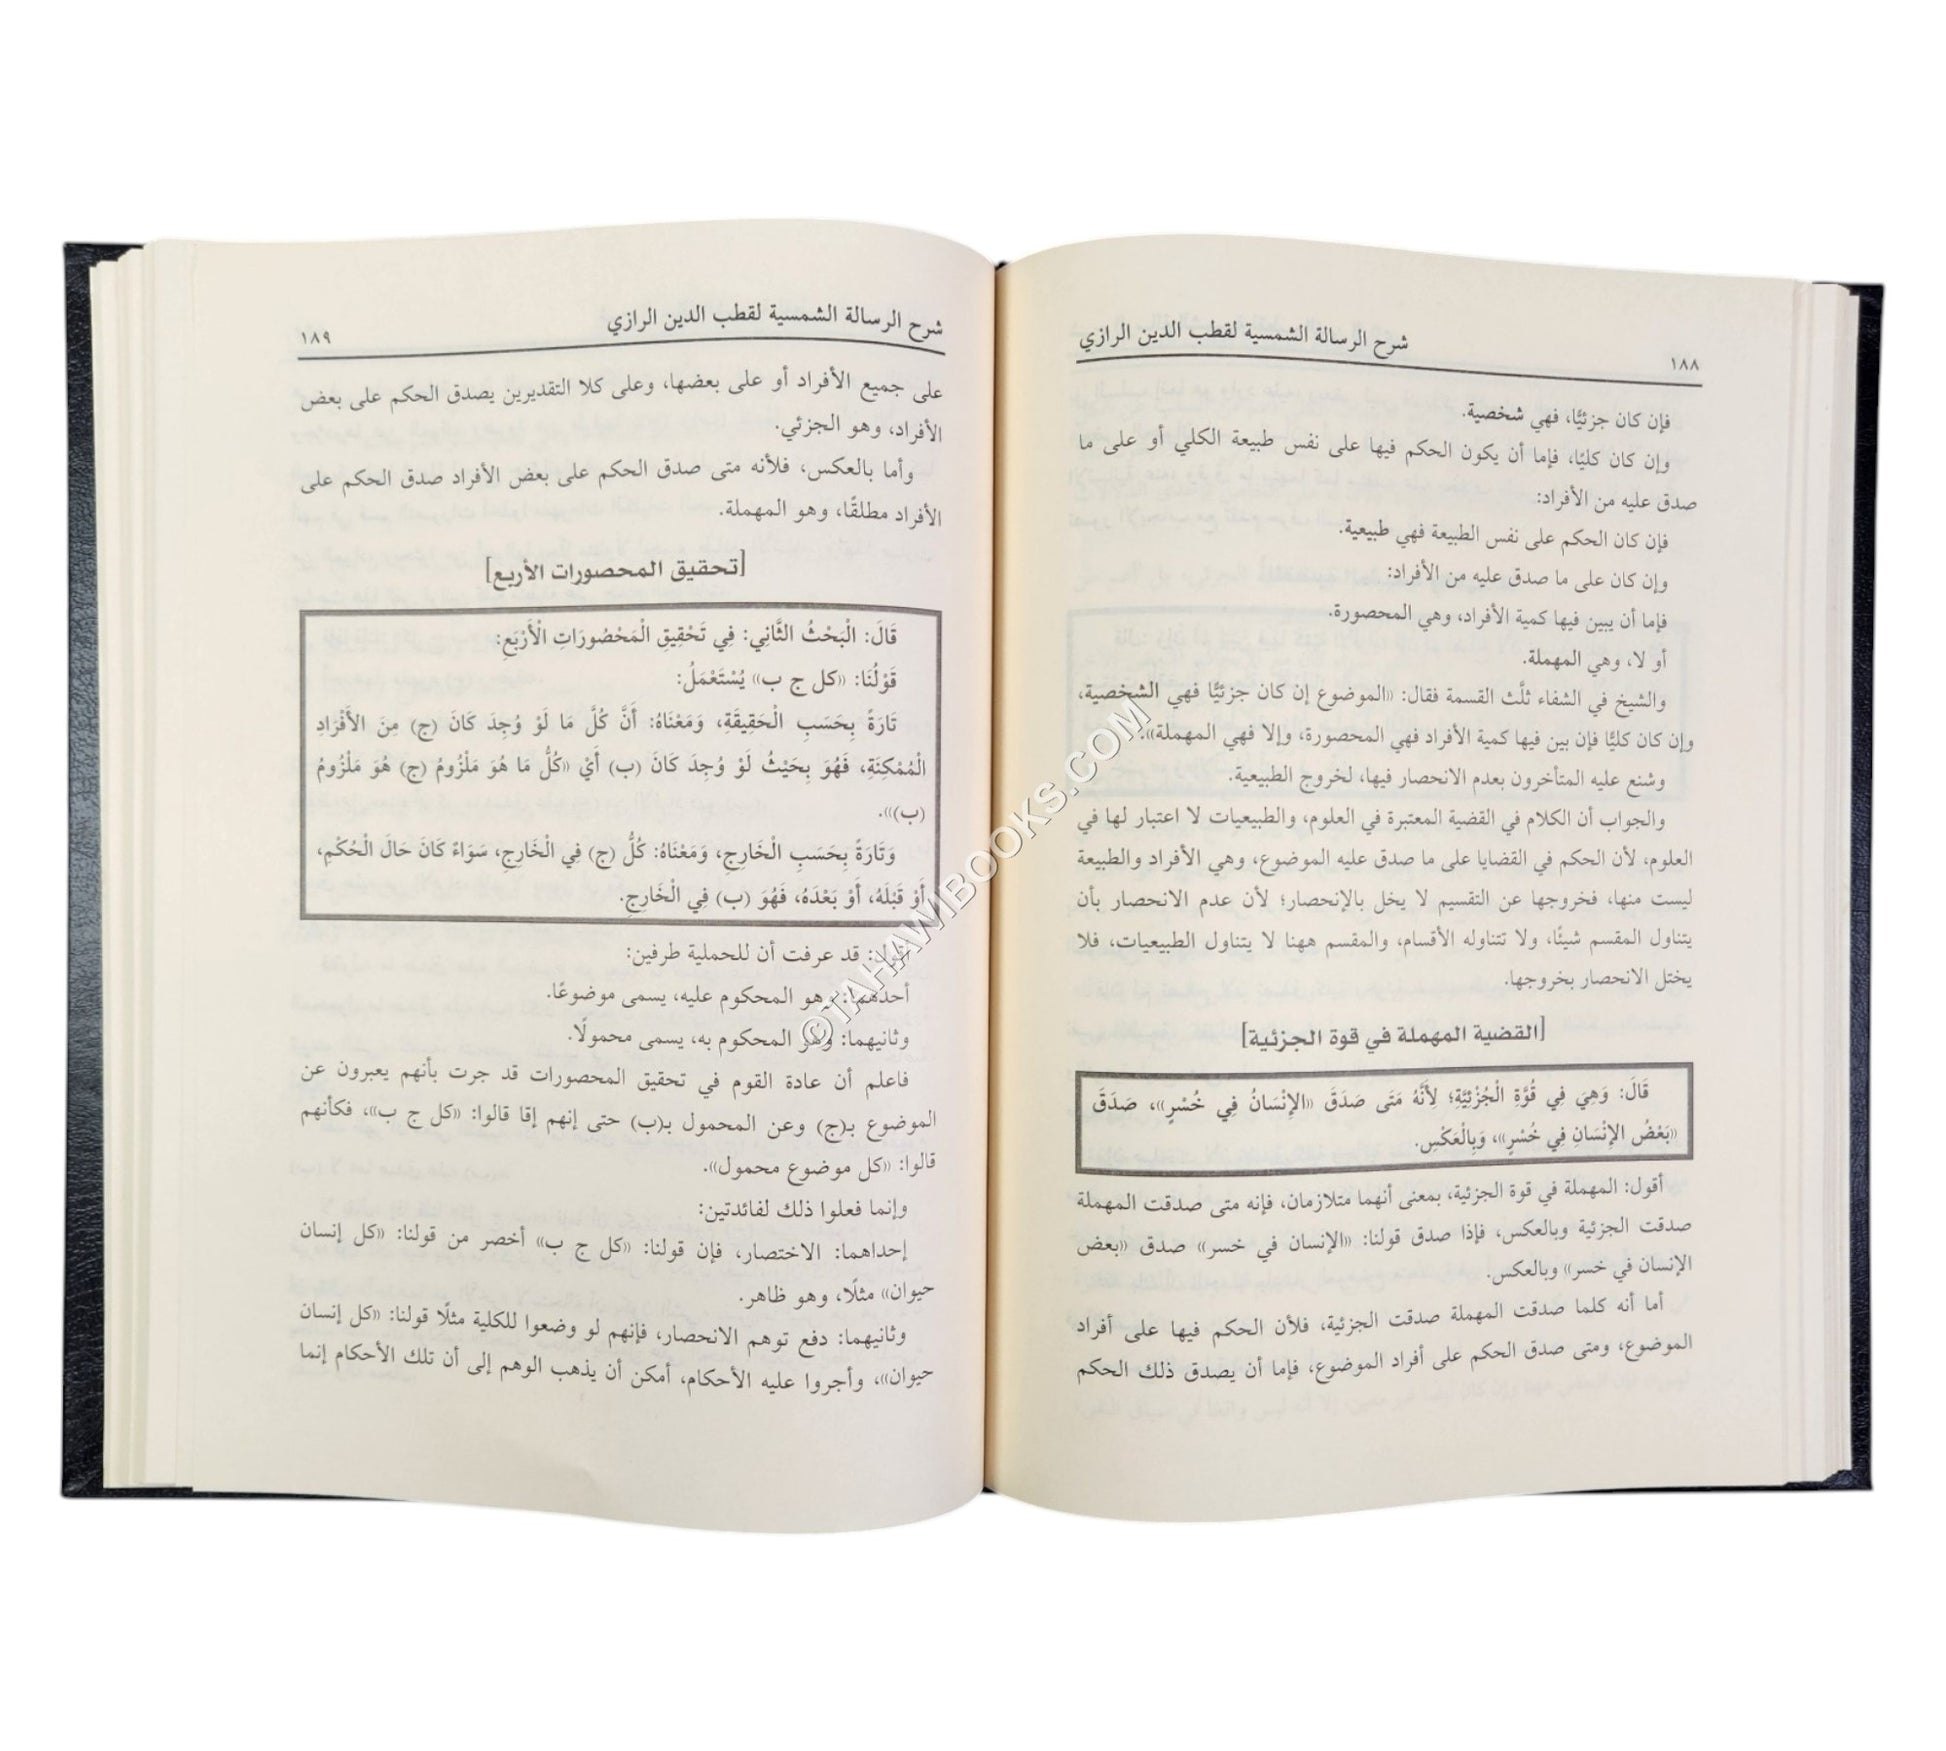 ١٨٨
شرح الرسالة الشمسية لقطب الدين الرازي
فإن كان جزئيًّا، فهي شخصية.
وإن كان كليًا، فإما أن يكون الحكم فيها على نفس طبيعة الكلي أو على ما
صدق عليه من الأفراد:
فإن كان الحكم على نفس الطبيعة فهي طبيعية.
وإن كان على ما صدق عليه من الأفراد:
فإما أن يبين فيها كمية الأفراد، وهي المحصورة.
أو لا، وهي المهملة.
والشيخ في الشفاء ثلَّث القسمة فقال: «الموضوع إن كان جزئيًّا فهي الشخصية،
وإن كان كليًّا فإن بين فيها كمية الأفراد فهي المحصورة، وإلا فهي المهملة».
وشنع عليه المتأخرون بعدم الانحصار فيها، لخروج الطبيعية.
والجواب أن الكلام في القضية المعتبرة في العلوم، والطبيعيات لا اعتبار لها في
العلوم، لأن الحكم في القضايا على ما صدق عليه الموضوع، وهي الأفراد والطبيعة
ليست منها، فخروجها عن التقسيم لا يخل بالإنحصار؛ لأن عدم الانحصار بأن
يتناول المقسم شيئًا، ولا تتناوله الأقسام، والمقسم ههنا لا يتناول الطبيعيات، فلا
يختل الانحصار بخروجها.
[القضية المهملة في قوة الجزئية]
قَالَ: وَهِيَ فِي قُوَّةِ الْجُزْئِيَّةِ؛ لِأَنَّهُ مَتَى صَدَقَ «الإِنْسَانُ فِي خُسْرٍ»، صَدَقَ
«بَعْضُ الإِنْسَانِ فِي خُسْرٍ»، وَبِالْعَكْسِ.
أقول: المهملة في قوة الجزئية، بمعنى أنهما متلازمان، فإنه متى صدقت المهملة
صدقت الجزئية وبالعكس، فإذا صدق قولنا: «الإنسان في خسر» صدق «بعض
الإنسان في خسر» وبالعكس.
أما أنه كلما صدقت المهملة صدقت الجزئية، فلأن الحكم فيها على أفراد
الموضوع، ومتى صدق الحكم على أفراد الموضوع، فإما أن يصدق ذلك الحكم
شرح الرسالة الشمسية لقطب الدين الرازي
١٨٩
على جميع الأفراد أو على بعضها، وعلى كلا التقديرين يصدق الحكم على بعض
الأفراد، وهو الجزئي.
وأما بالعكس، فلأنه متى صدق الحكم على بعض الأفراد صدق الحكم على
الأفراد مطلقًا، وهو المهملة.
[تحقيق المحصورات الأربع]
قَالَ: الْبَحْثُ الثَّانِي: فِي تَحْقِيقِ الْمَحْصُورَاتِ الْأَرْبَعِ:
قَوْلُنَا: «كل ج ب» يُسْتَعْمَلُ:
تَارَةً بِحَسَبِ الْحَقِيقَةِ، وَمَعْنَاهُ: أَنَّ كُلَّ مَا لَوْ وُجِدَ كَانَ (ج) مِنَ الأَفْرَادِ
الْمُمْكِنَةِ، فَهُوَ بِحَيْثُ لَوْ وُجِدَ كَانَ (ب) أَيْ «كُلُّ مَا هُوَ مَلْزُومُ (ج) هُوَ مَلْزُومُ
(ب)».
وَتَارَةً بِحَسَبِ الْخَارِجِ، وَمَعْنَاهُ: كُلُّ (ج) فِي الْخَارِجِ، سَوَاءً كَانَ حَالَ الْحُكْمِ،
أَوْ قَبْلَهُ، أَوْ بَعْدَهُ، فَهُوَ (ب) فِي الْخَارِجِ.
أقول: قد عرفت أن للحملية طرفين:
أحدهما: وهو المحكوم عليه، يسمى موضوعًا.
وثانيهما: وهو المحكوم به، يسمى محمولًا.
فاعلم أن عادة القوم في تحقيق المحصورات قد جرت بأنهم يعبرون عن
الموضوع بـ(ج) وعن المحمول بـ(ب) حتى إنهم إقا قالوا: «كل ج ب»، فكأنهم
قالوا: «كل موضوع محمول».
وإنما فعلوا ذلك لفائدتين:
إحداهما: الاختصار، فإن قولنا: «كل ج ب» أخصر من قولنا: «كل إنسان
حيوان» مثلًا، وهو ظاهر.
وثانيهما: دفع توهم الانحصار، فإنهم لو وضعوا للكلية مثلًا قولنا: «كل إنسان
حيوان»، وأجروا عليه الأحكام، أمكن أن يذهب الوهم إلى أن تلك الأحكام إنما
©TAHAWIBOOKS.COM